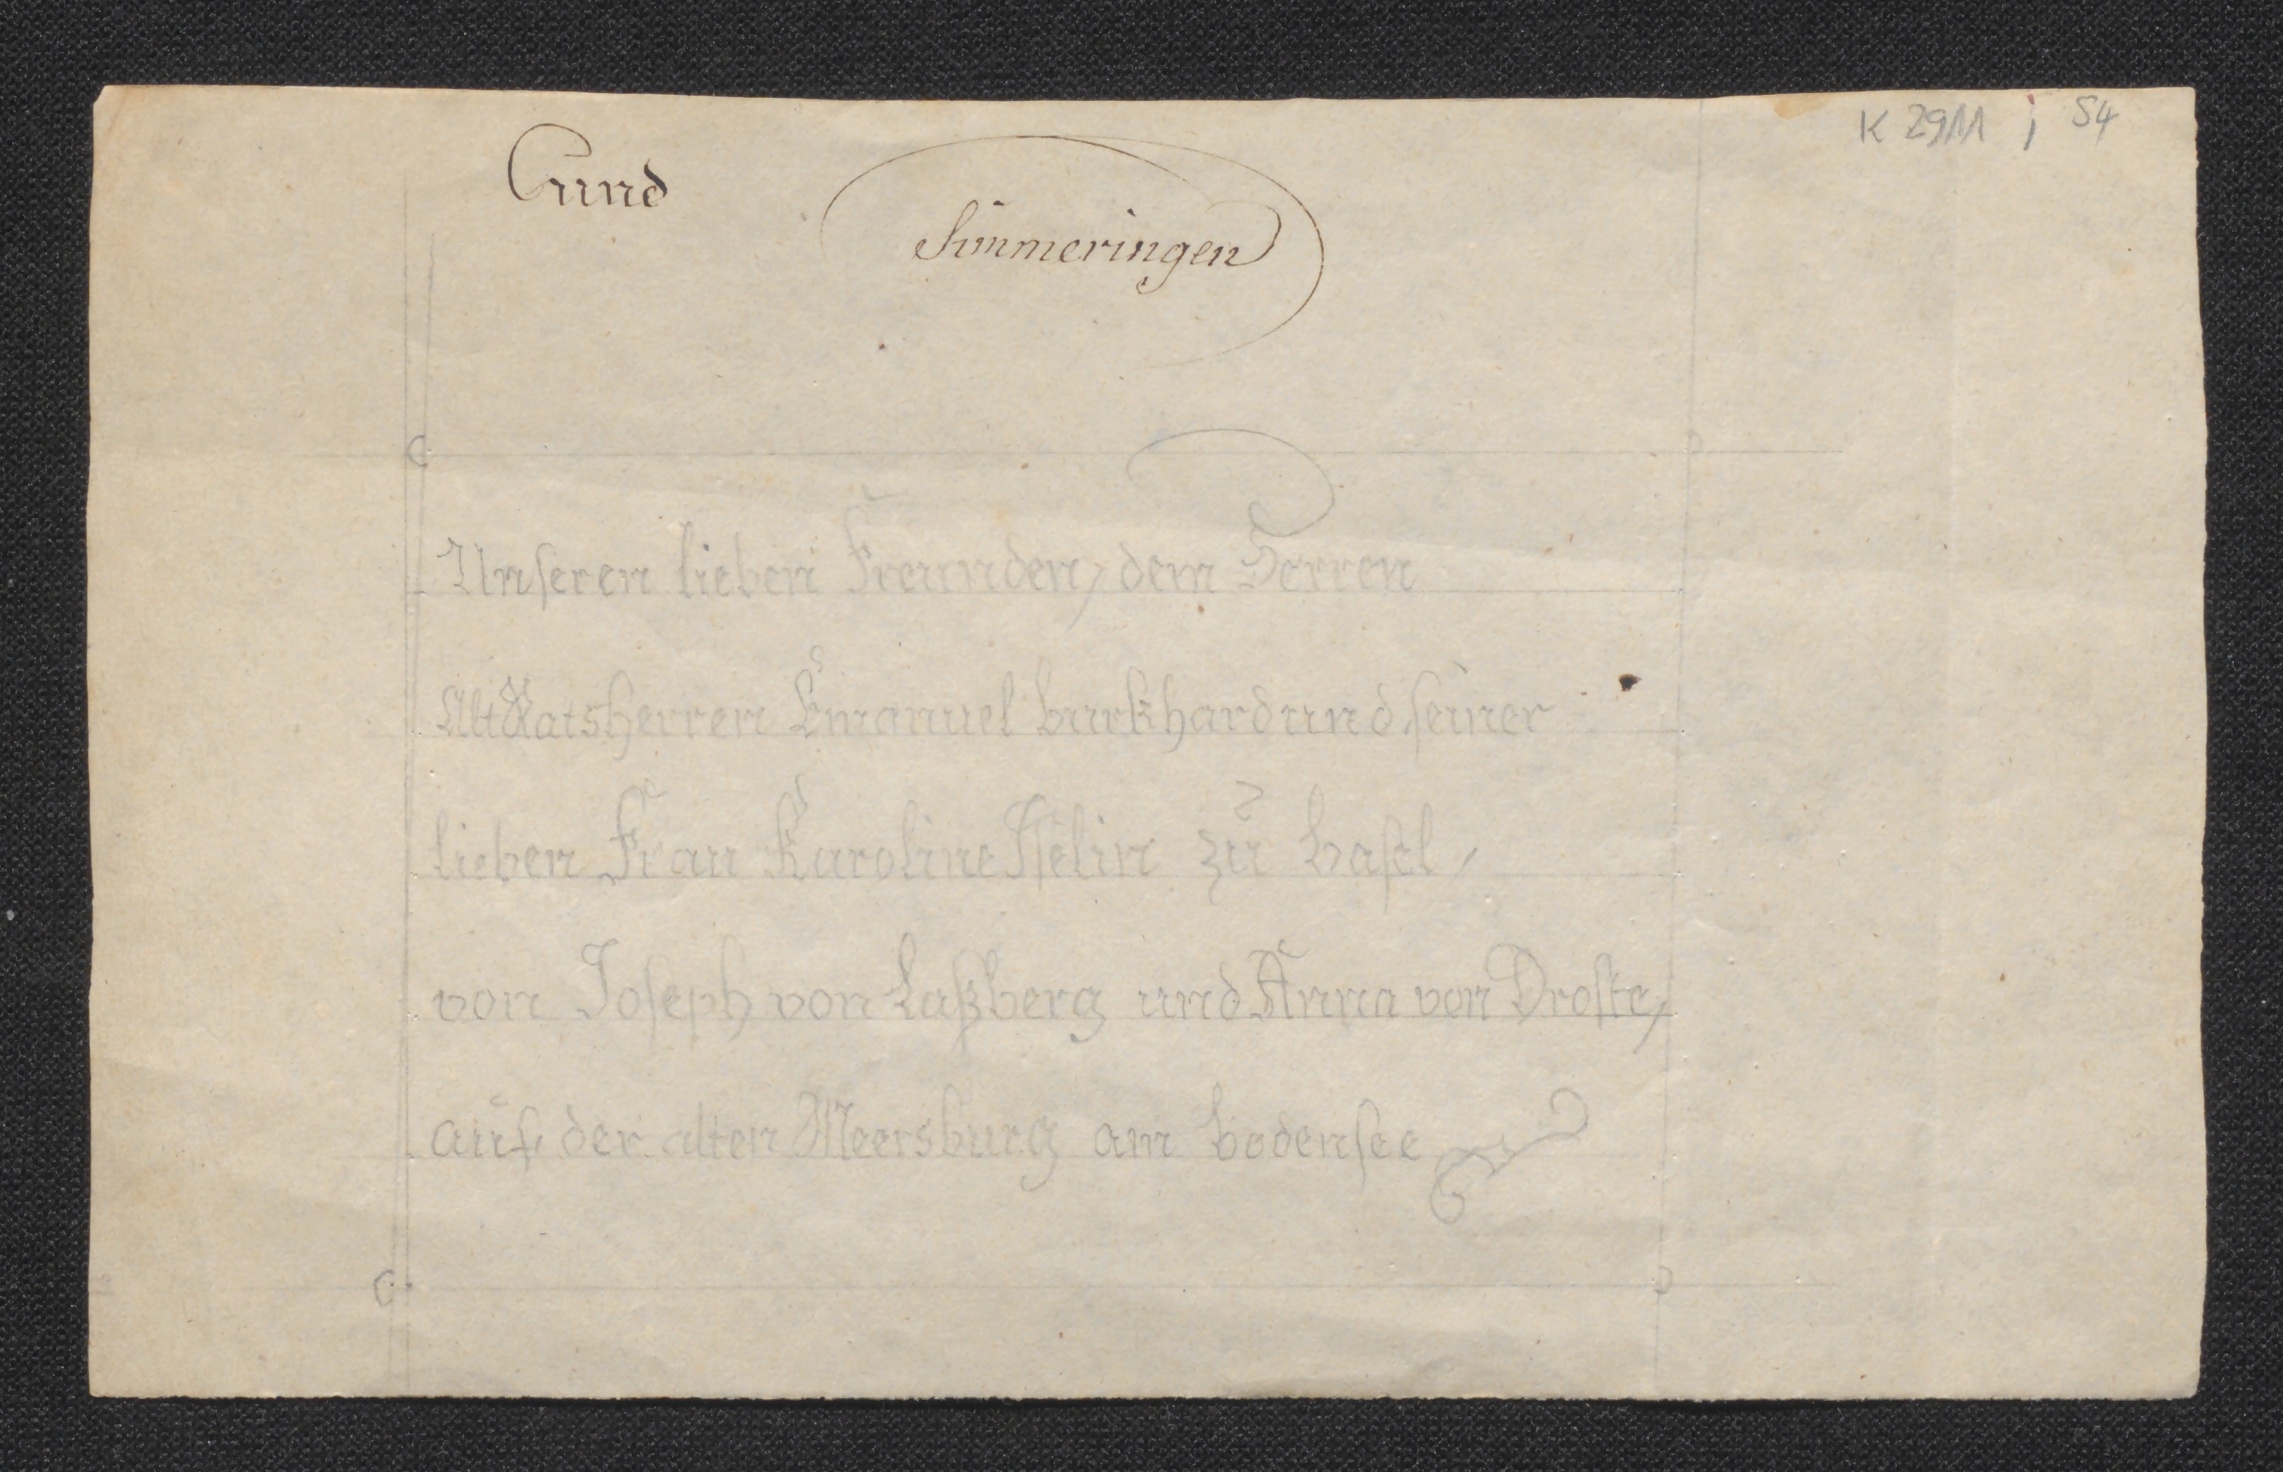 K 2911 ; 54
Cund
Simmeringen
Unseren lieben Freunden, dem Herren
AltRatsherren Emanuel burkhard und seiner
lieben Frau Karoline Iselin zu basel,
von Joseph von Laßberg und Anna von Droste,
auf der alten Meersburg am bodensee